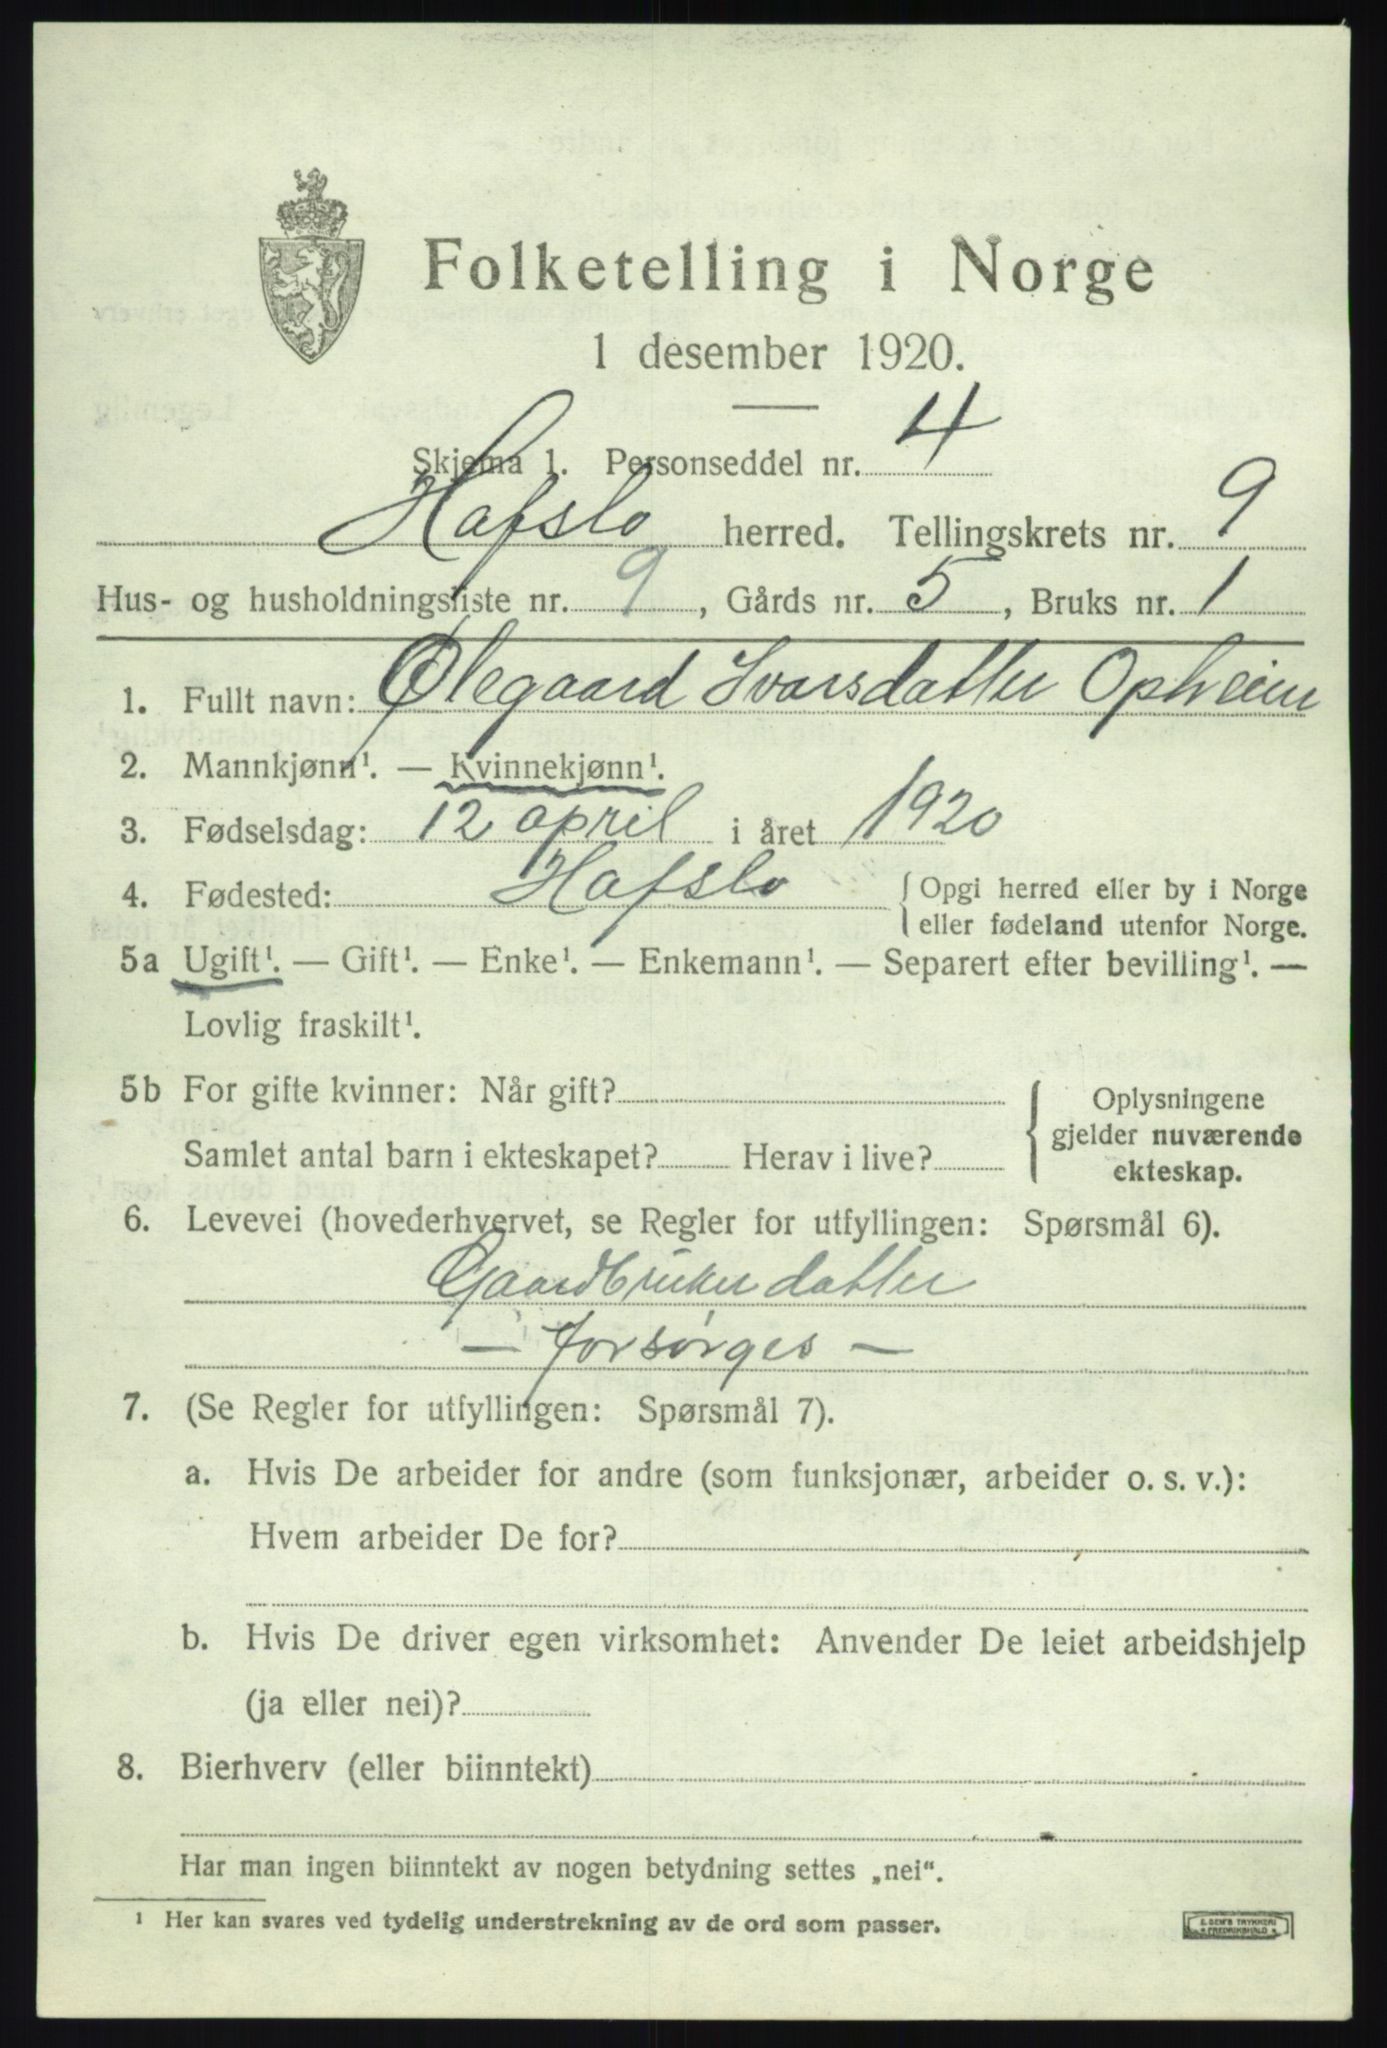 Folketelling i Norge
1 desember 1920.
Skjema 1. Personseddel nr. 4
Hafslo herred. Tellingskrets nr. 9
Hus- og husholdningsliste nr. 9, Gårds nr. 5, Bruks nr. 1
1. Fullt navn: Ølegaard Ivarsdatter Opheim
2. Mannkjønn¹. — Kvinnekjønn¹.
3. Fødselsdag: 12 april i året 1920
4. Fødested: Hafslo { Opgi herred eller by i Norge
eller fødeland utenfor Norge.
5a Ugift¹. — Gift¹. — Enke¹. — Enkemann¹. — Separert efter bevilling¹. —
Lovlig fraskilt¹.
5b For gifte kvinner: Når gift?
Samlet antal barn i ekteskapet? Herav i live?
Oplysningene
gjelder nuværende
ekteskap.
6. Levevei (hovederhvervet, se Regler for utfyllingen: Spørsmål 6).
Gaardbruker datter
— forsørges —
7. (Se Regler for utfyllingen: Spørsmål 7).
a. Hvis De arbeider for andre (som funksjonær, arbeider o. s. v.):
Hvem arbeider De for?
b. Hvis De driver egen virksomhet: Anvender De leiet arbeidshjelp
(ja eller nei)?
8. Bierhverv (eller biinntekt)
Har man ingen biinntekt av nogen betydning settes „nei“.
¹ Her kan svares ved tydelig understrekning av de ord som passer.
E. SEM'S TRYKKERI
FREDRIKSHALD